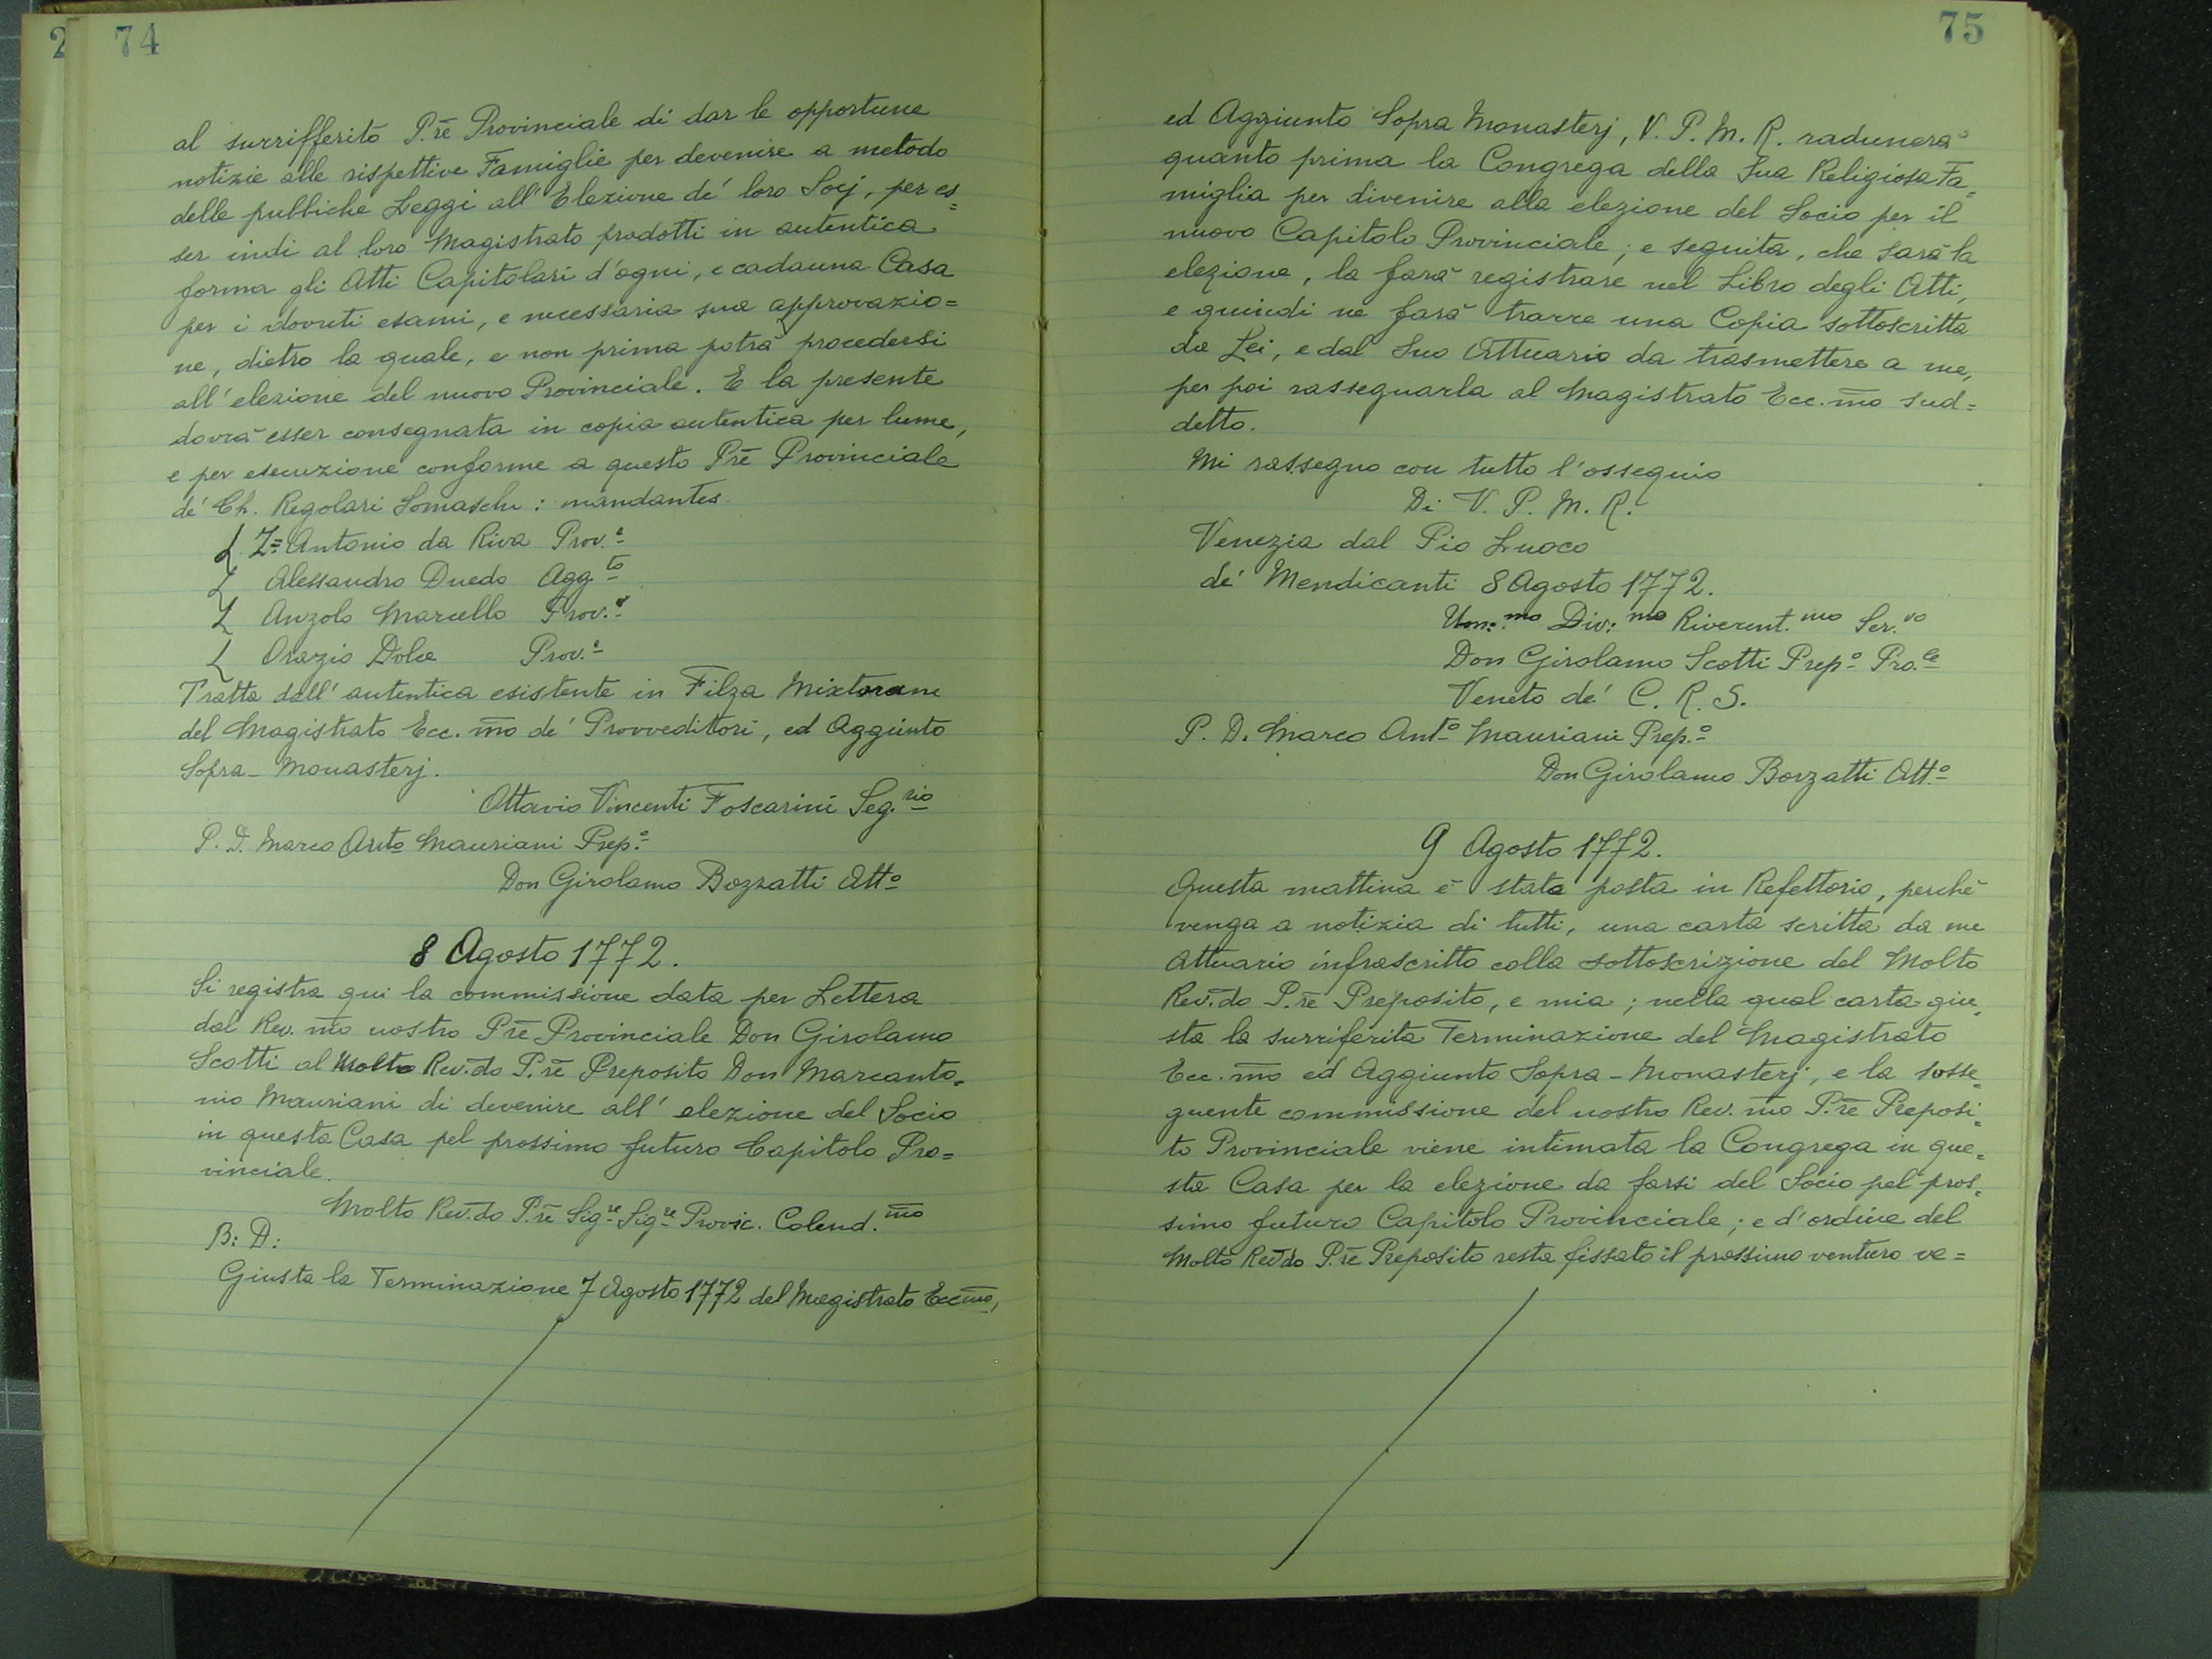 2
74
al surrifferito P.rē Provinciale di dar le opportune
notizie alle rispettive Famiglie per devenire a metodo
delle pubbliche Leggi all'Elezione de' loro Socj, per es=
ser indi al loro Magistrato prodotti in autentica
forma gli Atti Capitolari d'ogni, e cadauna Casa
per i dovuti esami, e necessaria sua approvazio=
ne, dietro la quale, e non prima potrà procedersi
all'elezione del nuovo Provinciale. E la presente
dovrà esser consegnata in copia autentica per lume,
e per esecuzione conforme a questo Prē Provinciale
de' Ch. Regolari Somaschi: mandantes.
Z= Antonio da Riva Prov.e
Alessandro Duodo Agg.to
Anzolo Marcello Prov.e
Orazio Dolce Prov.e
Tratta dall'autentica esistente in Filza Mixtorum
del Magistrato Ecc.mo de' Provveditori, ed Aggiunto
Sopra-Monasterj.
Ottavio Vincenti Foscarini Seg.rio
P. D. Marco Anto Mauriani Prep.o
Don Girolamo Bozzatti Atto
8 Agosto 1772.
Si registra qui la commissione data per Lettera
dal Rev.mo nostro Prē Provinciale Don Girolamo
Scotti al Molto Rev.do P.rē Preposito Don Marcanto=
nio Mauriani di devenire all'elezione del Socio
in questa Casa pel prossimo futuro Capitolo Pro=
vinciale.
Molto Rev.do P.rē Sig.re Sig.re Colend.mo
B: D:
Giusta la Terminazione 7 Agosto 1772 del Magistrato Eccmo,
75
ed Aggiunto Sopra Monasterj, V. P. M. R. radunerà
quanto prima la Congrega della Sua Religiosa Fa=
miglia per divenire alla elezione del Socio per il
nuovo Capitolo Provinciale; e seguita, che sarà la
elezione, la farà registrare nel Libro degli Atti,
e quindi ne farà trarre una Copia sottoscritta
da Lei, e dal Suo Attuario da trasmettere a me,
per poi rassegnarla al Magistrato Ecc.mo sud=
detto.
Mi rassegno con tutto l'ossequio
Di V. P. M. R.
Venezia dal Pio Luoco
de' Mendicanti 8 Agosto 1772.
Um:mo Div:mo Riverent.mo Ser.vo
Don Girolamo Scotti Prep.o Pro.le
Veneto de' C. R. S.
P. D. Marco Ant.o Mauriani Prep.o
Don Girolamo Bozzatti Att.o
9 Agosto 1772.
Questa mattina è stata posta in Refettorio, perchè
venga a notizia di tutti, una carta scritta da me
Attuario infrascritto colla sottoscrizione del Molto
Rev.do P.rē Preposito, e mia; nella qual carta giu=
sta la surriferita Terminazione del Magistrato
Ecc.mo ed Aggiunto Sopra-Monasterj, e la susse=
guente commissione del nostro Rev.mo P.rē Preposi=
to Provinciale viene intimata la Congrega in que=
sta Casa per la elezione da farsi del Socio pel pros=
simo futuro Capitolo Provinciale; e d'ordine del
Molto Revdo P.rē Preposito resta fissato il prossimo venturo ve=